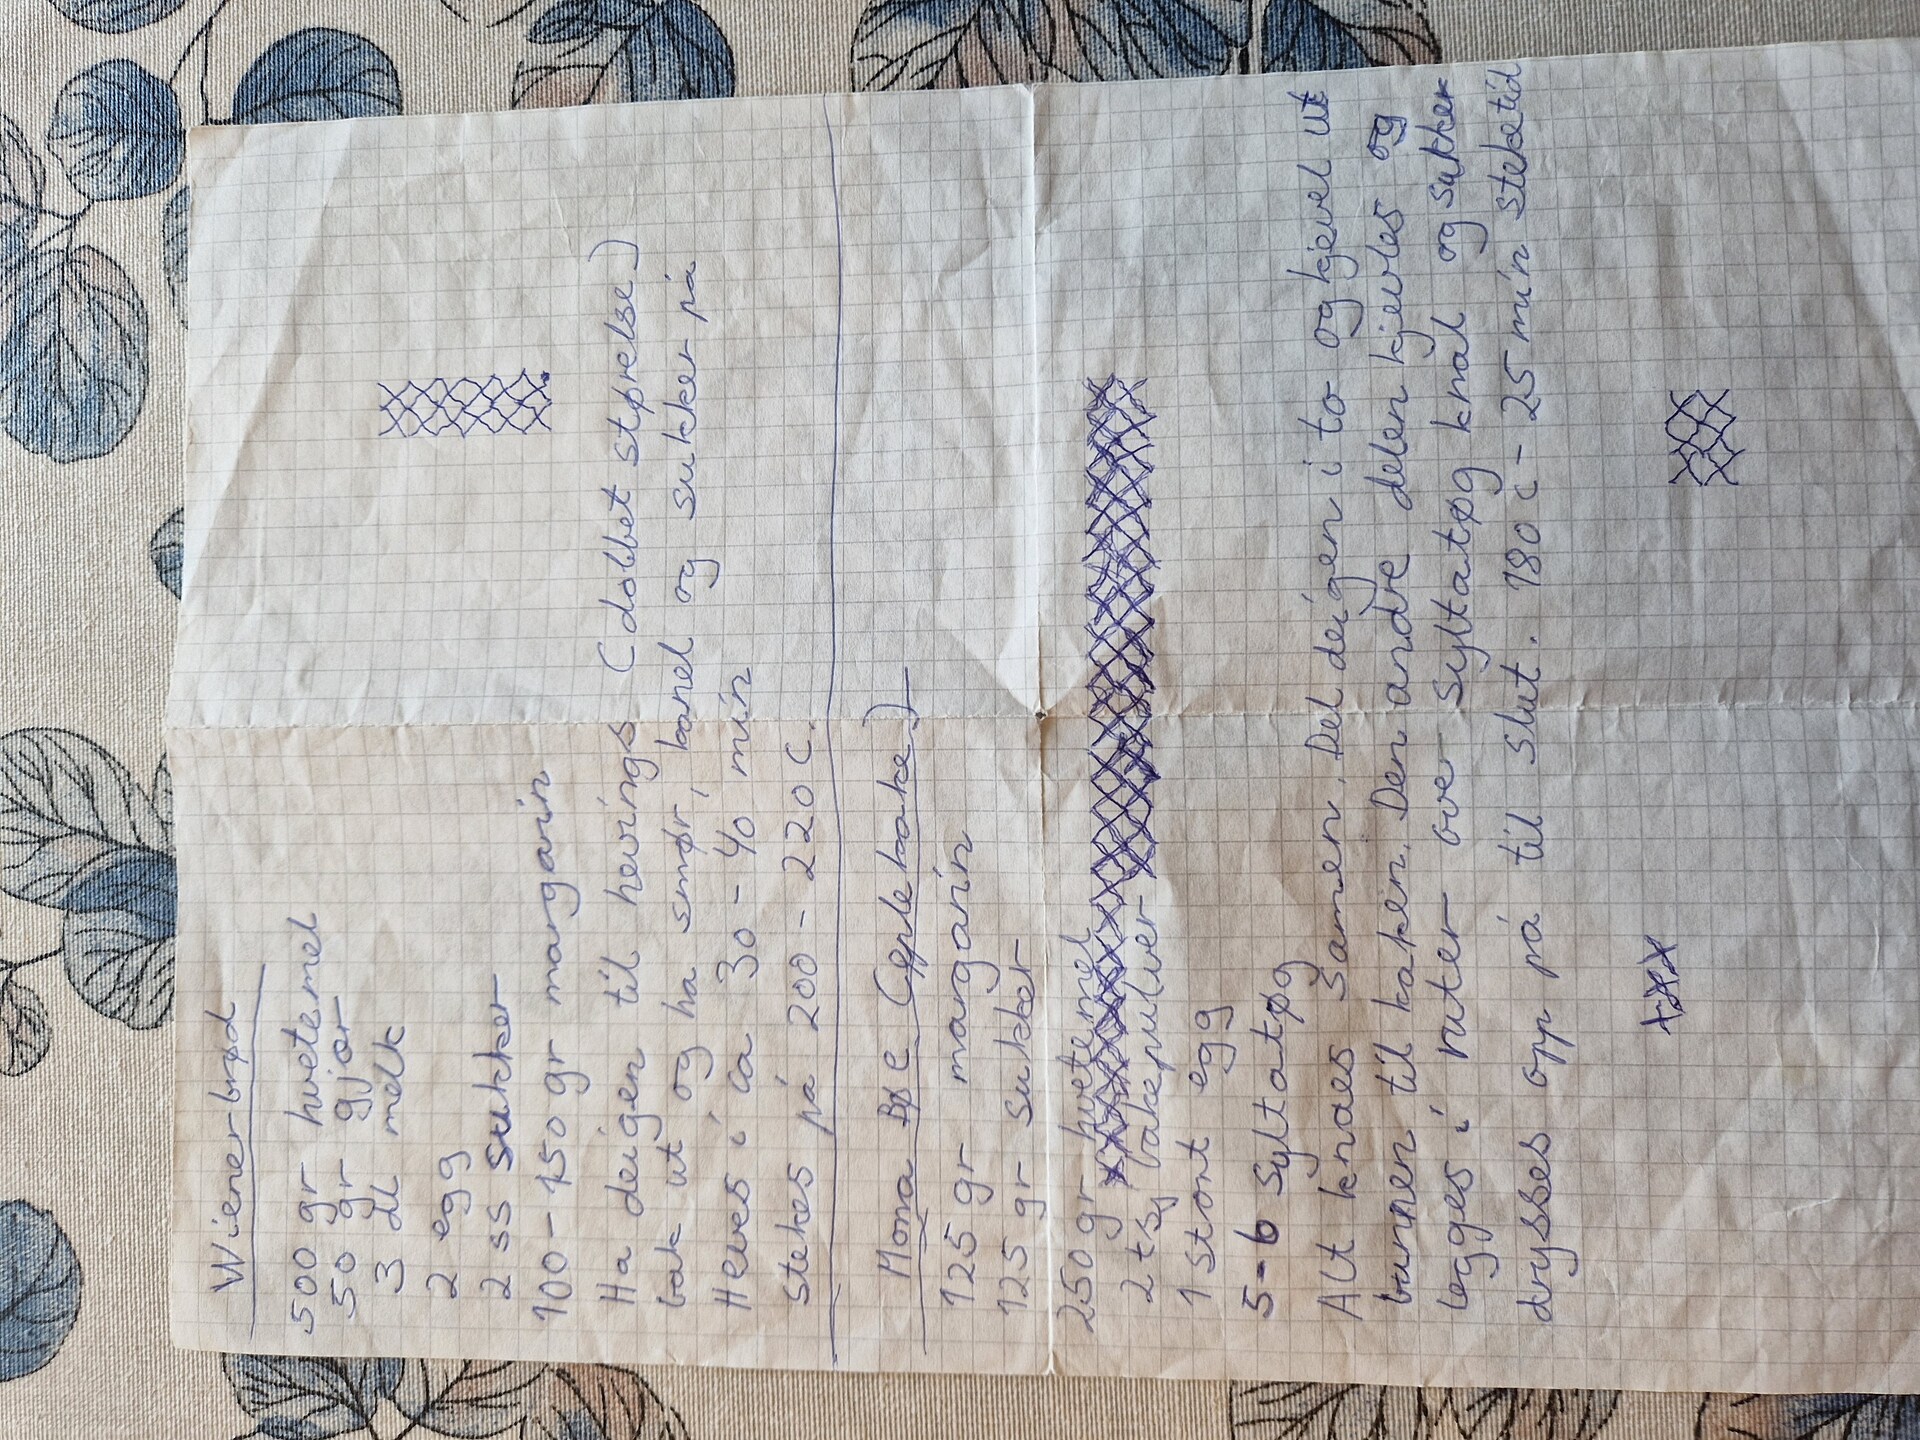 Wienerbrød
500 gr hvetemel
50 gr gjær
3 dl melk
2 egg
2 ss sukker
100-150 gr margarin
Ha deigen til hevings (dobbet størelse)
bak ut og ha smør, kanel og sukker på
Heves i ca 30-40 min
stekes på 200-220 C.
Mona Bøe (eplekake)
125 gr margarin
125 gr sukker
250 gr hvetemel
2 tsj bakepulver
1 stort egg
5-6 Syltatøg
Alt knaes samen. Del deigen i to og kjevel ut
bunnen til kaken. Den andre delen kjevles og
legges i ruter over syltatøg knal og sukker
drysses opp på til slut. 180 c - 25 min steketid
xxx